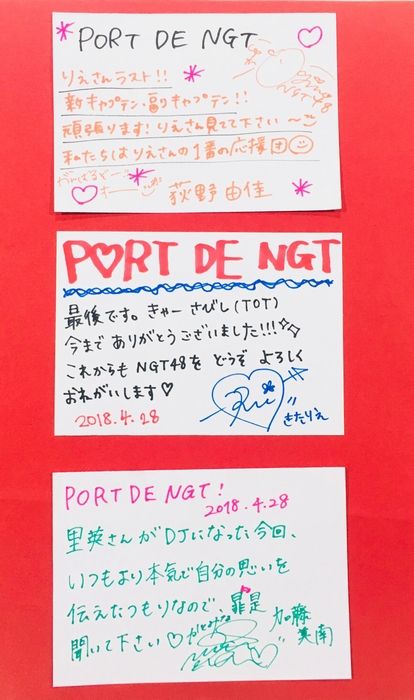 PORT DE NGT
りえさんラスト!!
新キャプテン、副キャプテン!!
頑張ります!りえさん見てて下さい〜
私たちはりえさんの1番の応援団
がんばるぞー
オー
荻野由佳
NGT48
PORT DE NGT
最後です。きゃーさびし(TOT)
今までありがとうございました!!!
これからもNGT48をどうぞよろしく
おねがいします♡
2018.4.28
Rie
きたりえ
PORT DE NGT!
2018.4.28
里英さんがDJになった今回、
いつもより本気で自分の思いを
伝えたつもりなので、是非
聞いて下さい♡
かとみな
加藤
美南